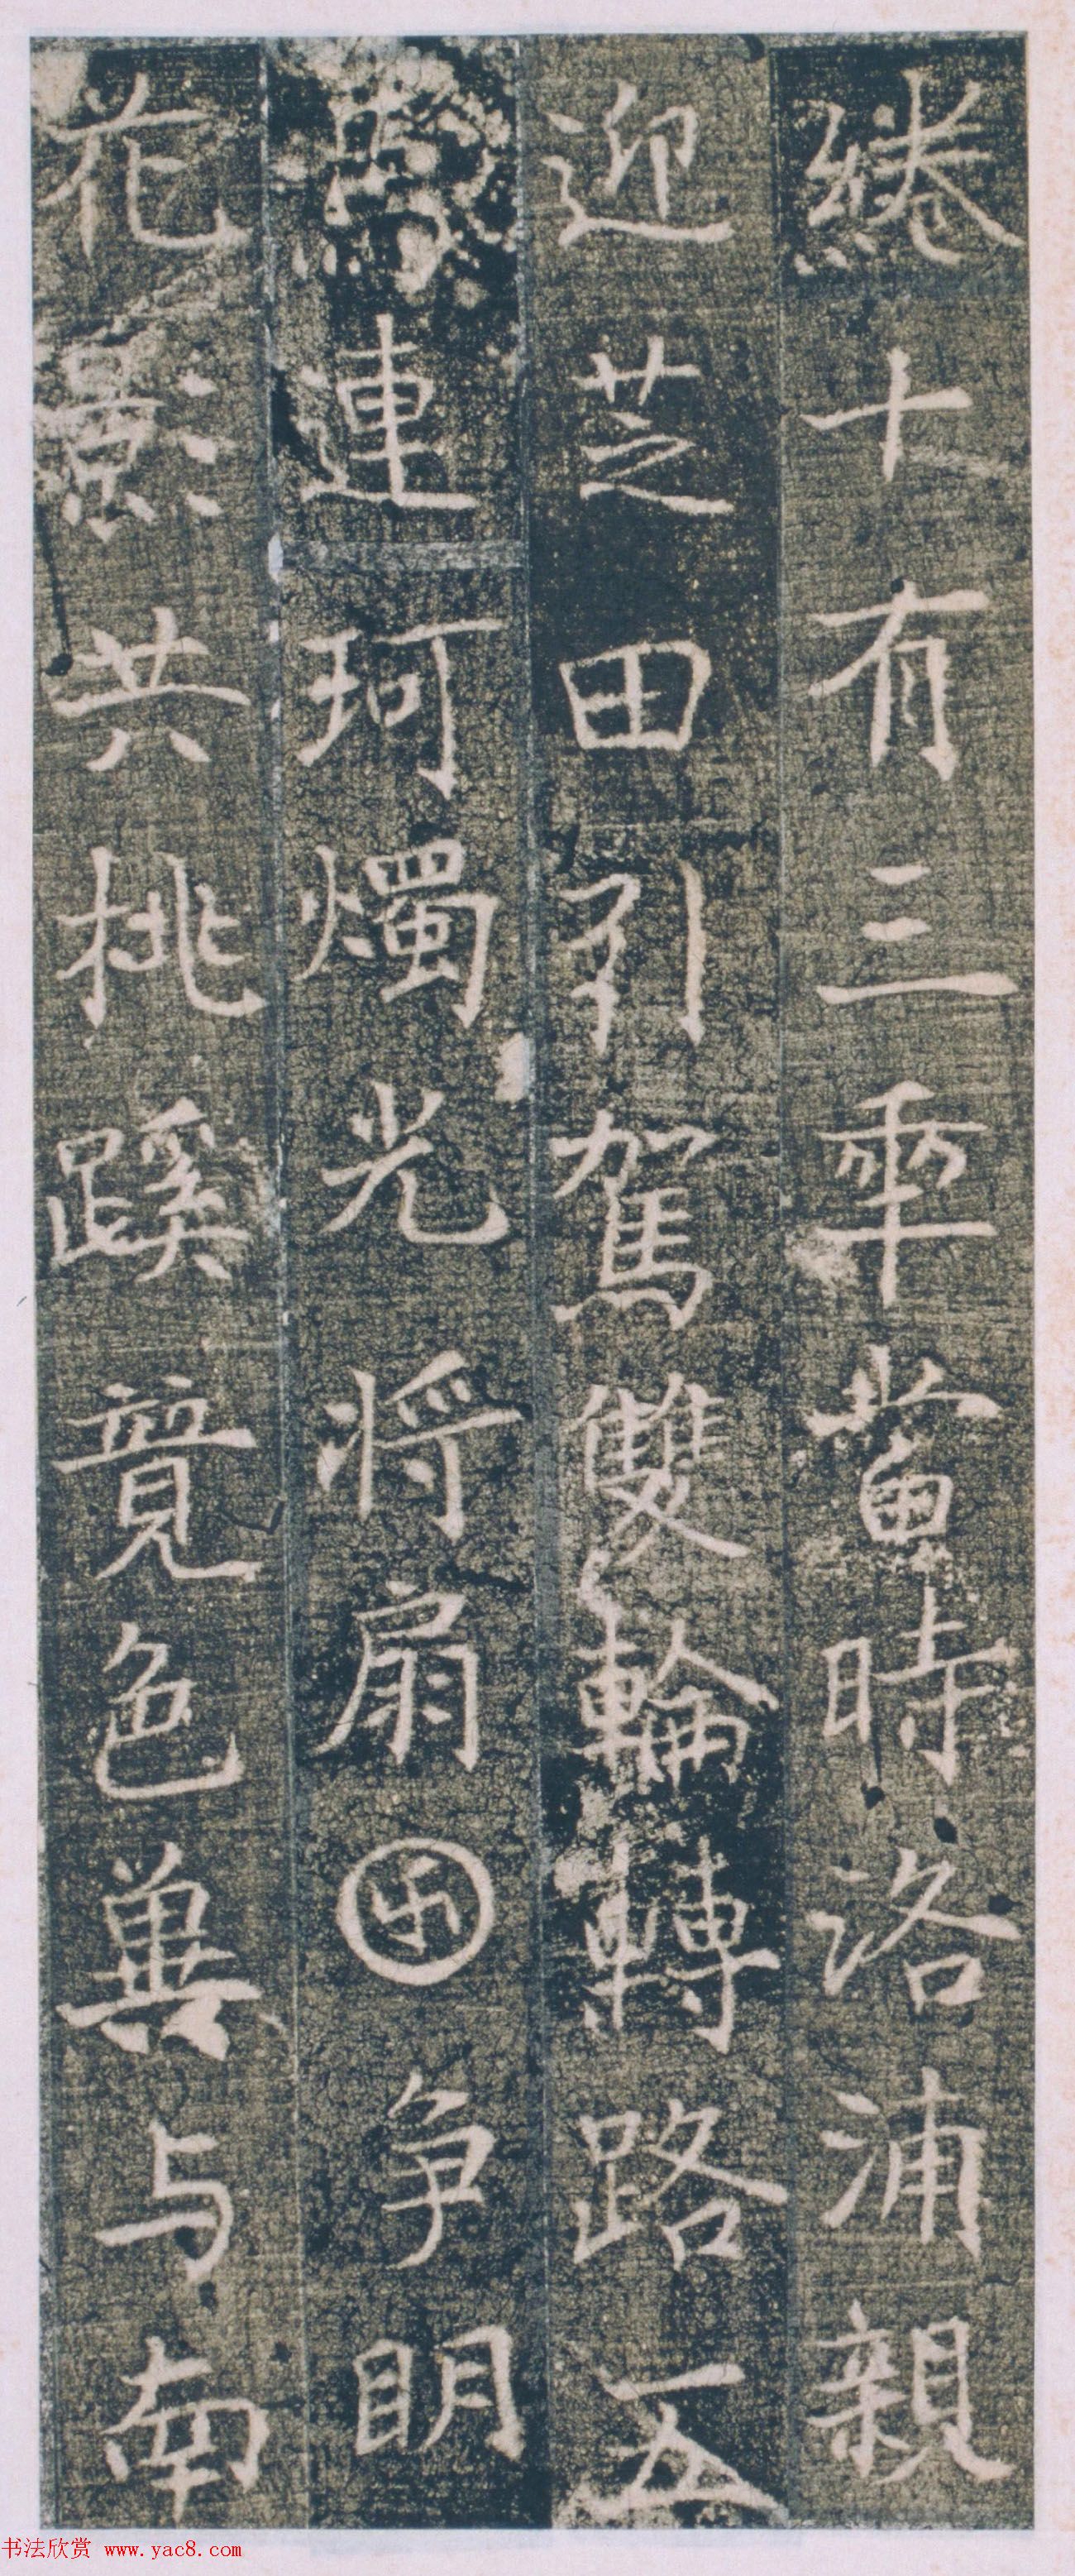 綣十有三年當時洛浦親
迎芝田引駕雙輪轉路五
連珂燭光将扇囝争眀
花影共挑蹊竟色冀与南
书法欣赏 www.yac8.com